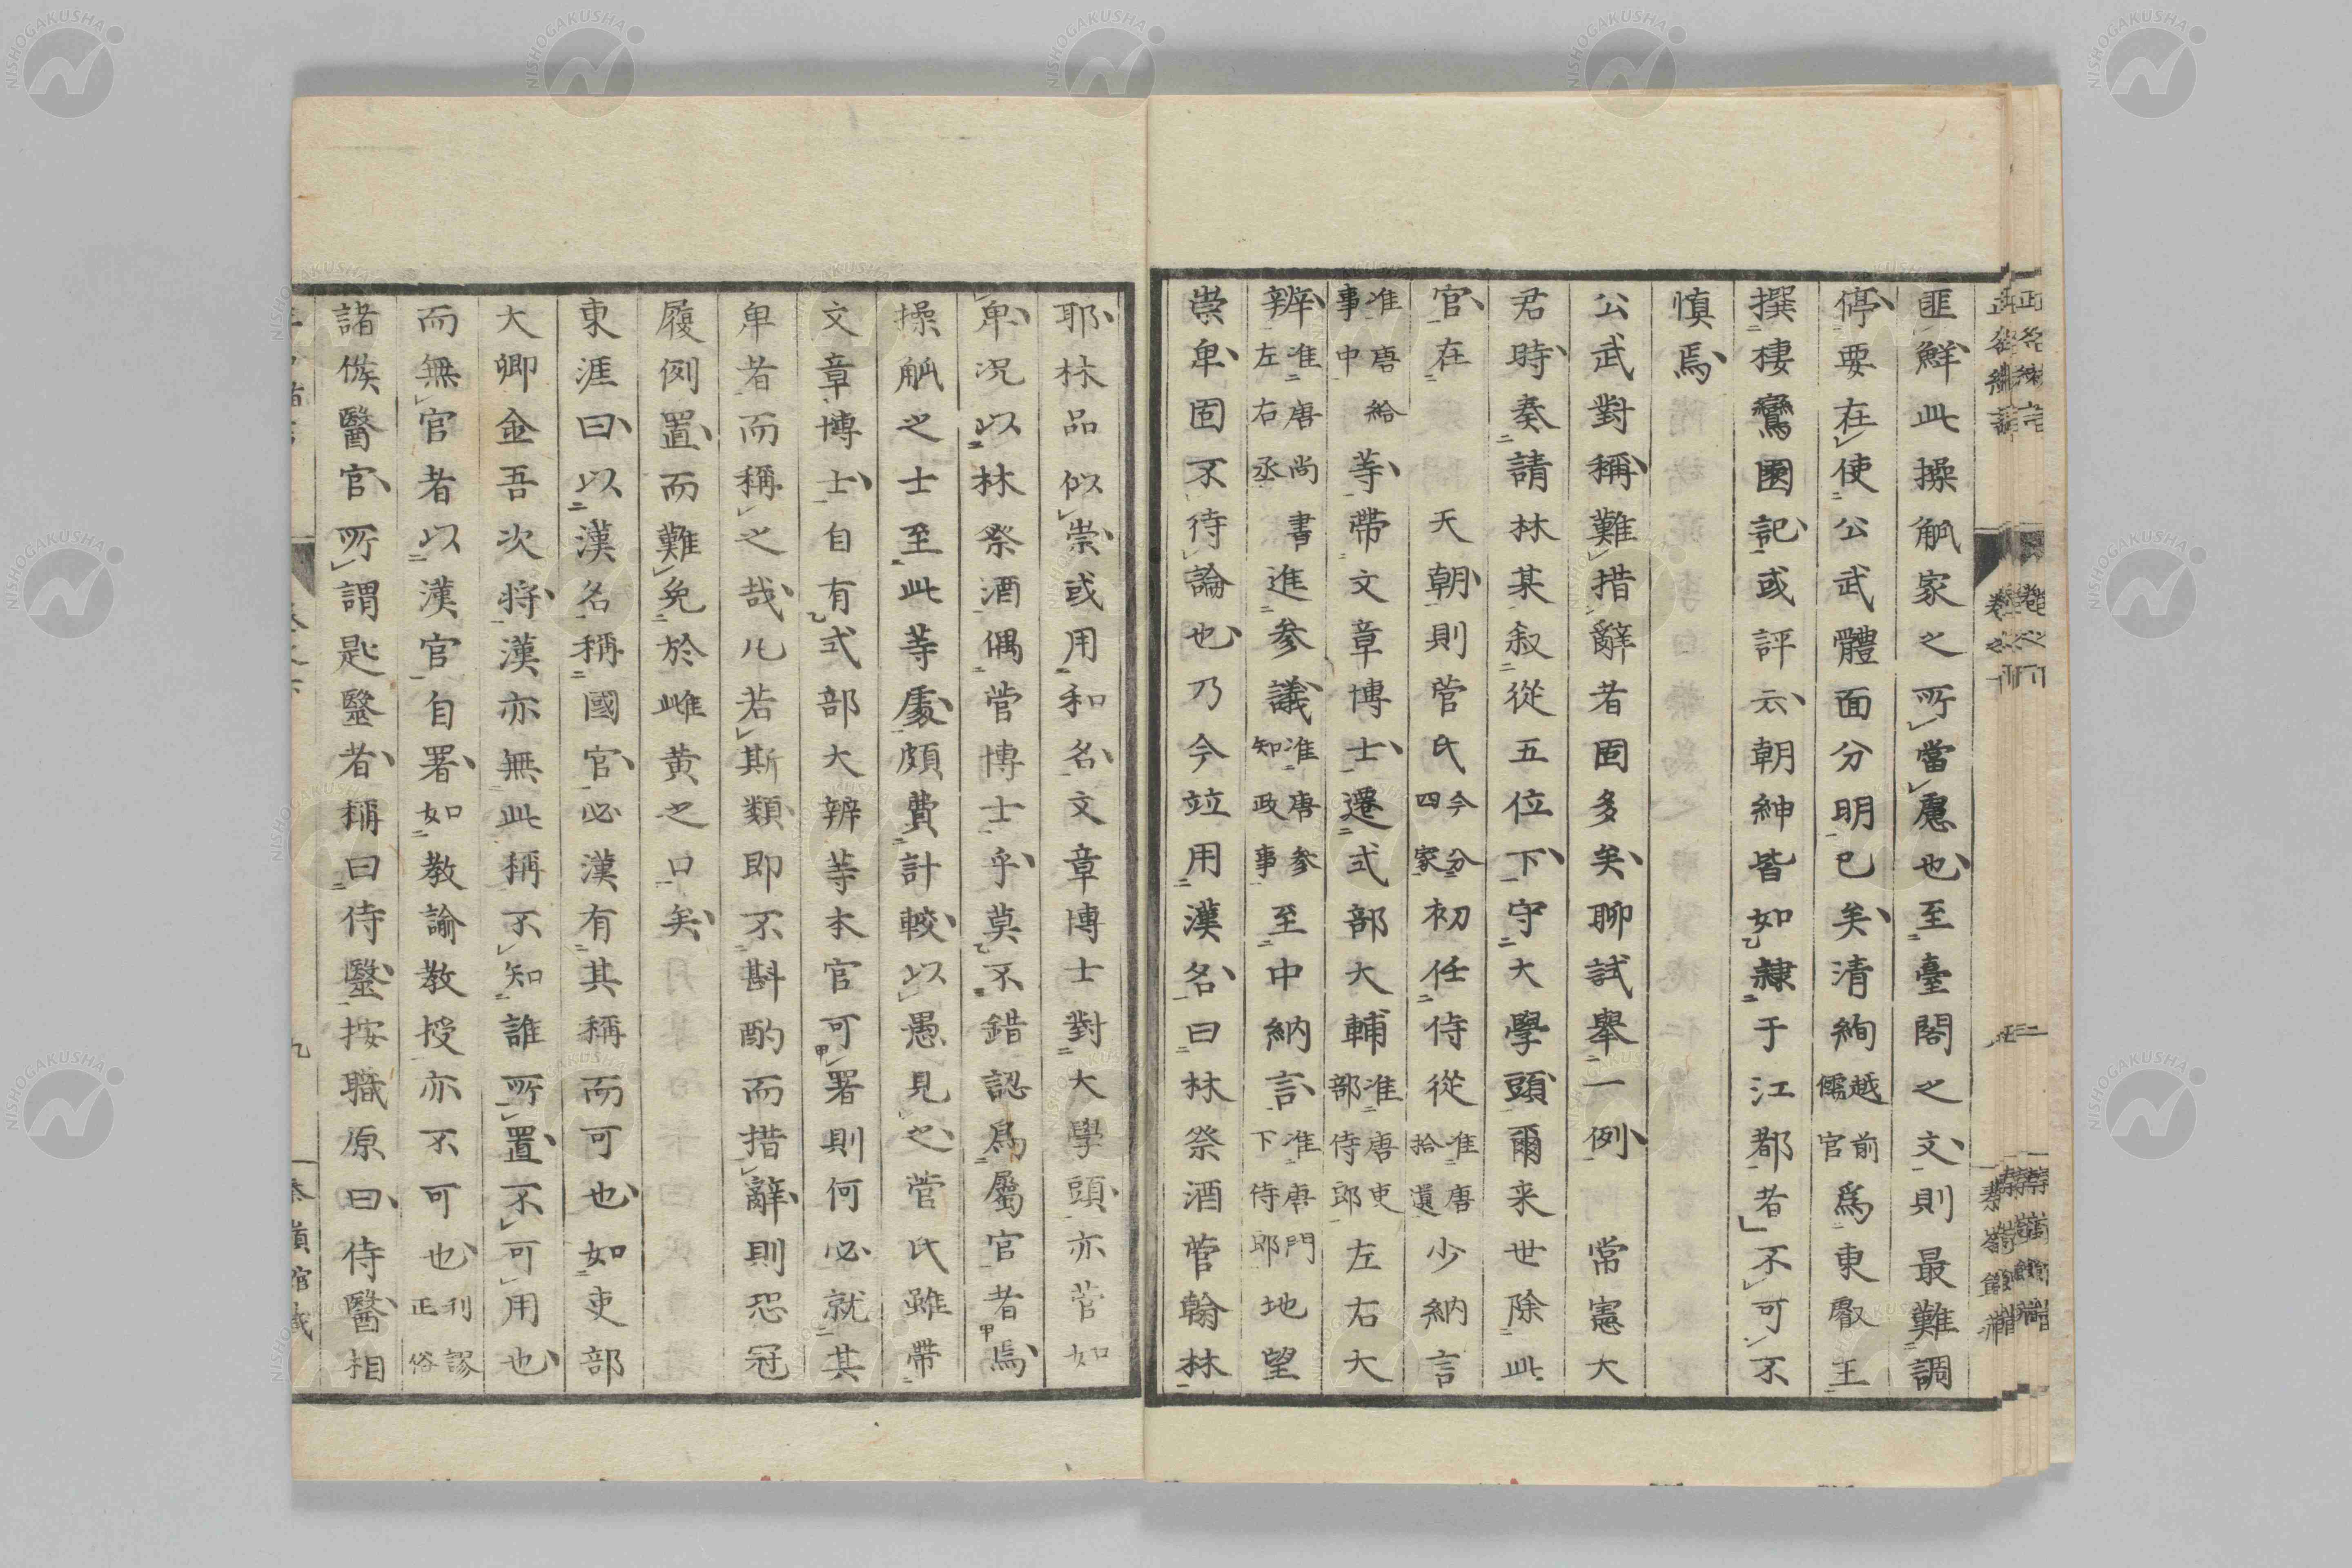 匪鮮此操觚家之所當慮也至臺閣之文則最難調
停要在使公武體面分明已矣清絢越前儒官爲東叡王
撰棲鸞園記或評云朝紳皆如隷于江都者不可不
慎焉
公武對稱難措辭者固多矣聊試舉一例 當憲大
君時奏請林某叙從五位下守大學頭爾来世除此
官在 天朝則菅氏今分四家初任侍從准唐拾遺少納言
准唐給事中等帶文章博士遷式部大輔准唐吏部侍郎左右大
辨准唐尚書左右丞進參議准唐參知政事至中納言准唐門下侍郎地望
崇卑固不待論也乃今竝用漢名曰林祭酒菅翰林
耶林品似崇或用和名文章博士對大學頭亦菅如
卑况以林祭酒偶菅博士乎莫不錯認爲屬官者焉
操觚之士至此等處頗費計較以愚見之菅氏雖帶
文章博士自有式部大辨等本官可署則何必就其
卑者而稱之哉凡若斯類即不斟酌而措辭則恐冠
履例置而難免於雌黄之口矣
東涯曰以漢名稱國官必漢有其稱而可也如吏部
大卿金吾次将漢亦無此稱不知誰所置不可用也
而無官者以漢官自署如教諭教授亦不可也刊謬正俗
諸侯醫官所謂匙醫者稱曰侍醫按職原曰侍醫相
NISHOGAKUSHA